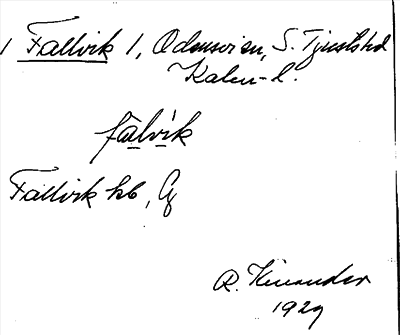 1 Fallvik 1, Odensvi sn, S. Tjusts hd
Kalm. l.
fàlvík
Fallvik hb, Cf
R. Kinander
1929